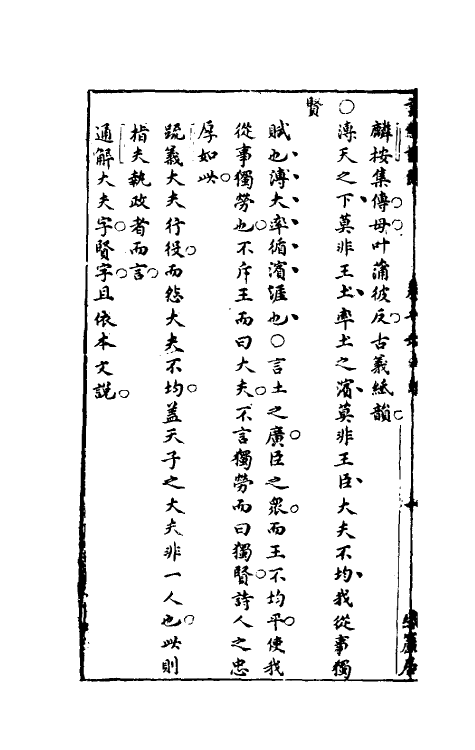 麟按集傳母叶蒲彼反古義紙韻
○溥天之下莫非王土率土之濱莫非王臣大夫不均我從事獨
賢
賦也溥大率循濱涯也○言土之廣臣之衆而王不均平使我
從事獨勞也不斥王而曰大夫不言獨勞而曰獨賢詩人之忠
厚如此
疏義大夫行役而怨大夫不均蓋天子之大夫非一人也此則
指夫執政者而言
通解大夫字賢字且依本文說